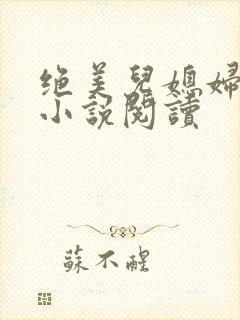 绝美兒媳婦
小說閱讀
蘇不醒